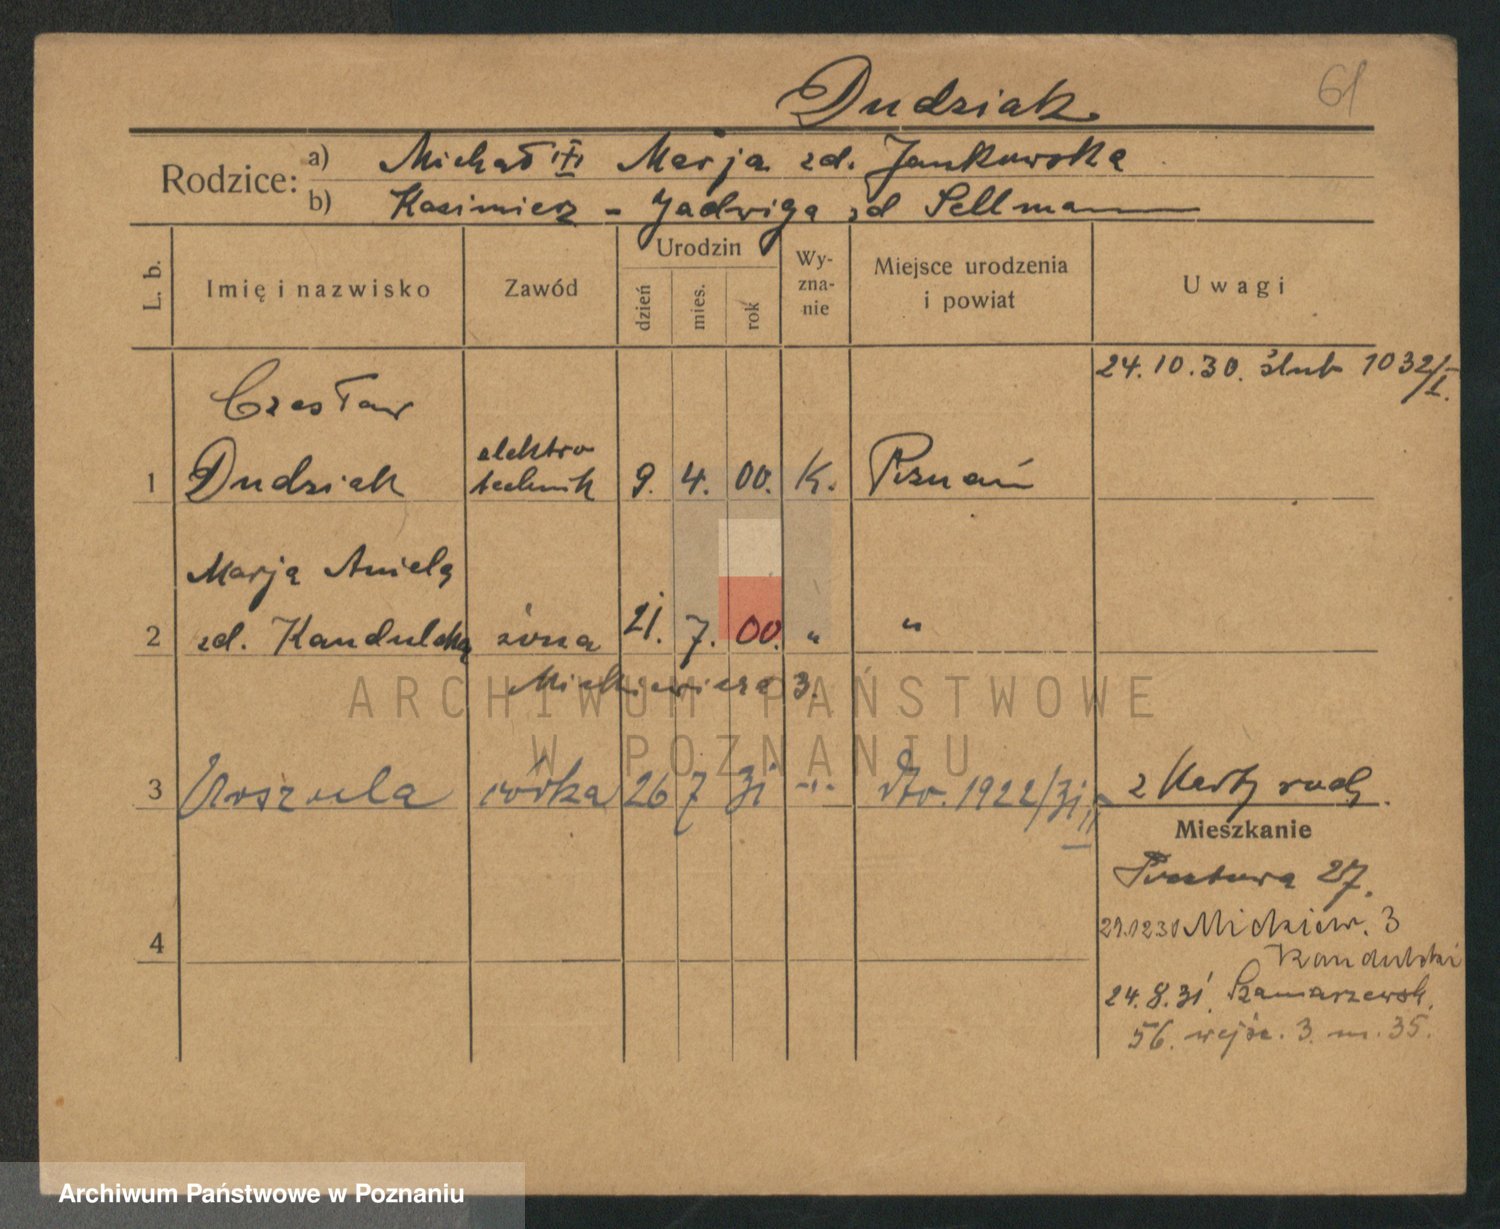 Dudziak
61
Rodzice: a) Michał Marja zd. Jankowska
b) Kazimierz - Jadwiga zd Sellmann
L. b.
Imię i nazwisko
Zawód
Urodzin
dzień
mies.
rok
Wy-
zna-
nie
Miejsce urodzenia
i powiat
Uwagi
24.10.30. ślub 1032/I.
Czesław
1 Dudziak elektro
technik 9. 4. 00. K. Poznań
Marja Aniela
2 zd. Kandulska żona 21. 7. 00. " "
Mickiewicza 3.
3 Urszula córka 26 7 31 -"- dto. 1922/31 II
z Karty rodz.
Mieszkanie
27.
4
29.12 30 Mickiew. 3
Kandulski
24.8.31. Szamarzewsk.
56. wejśc. 3. m. 35.
ARCHIWUM PAŃSTWOWE
W POZNANIU
Archiwum Państwowe w Poznaniu